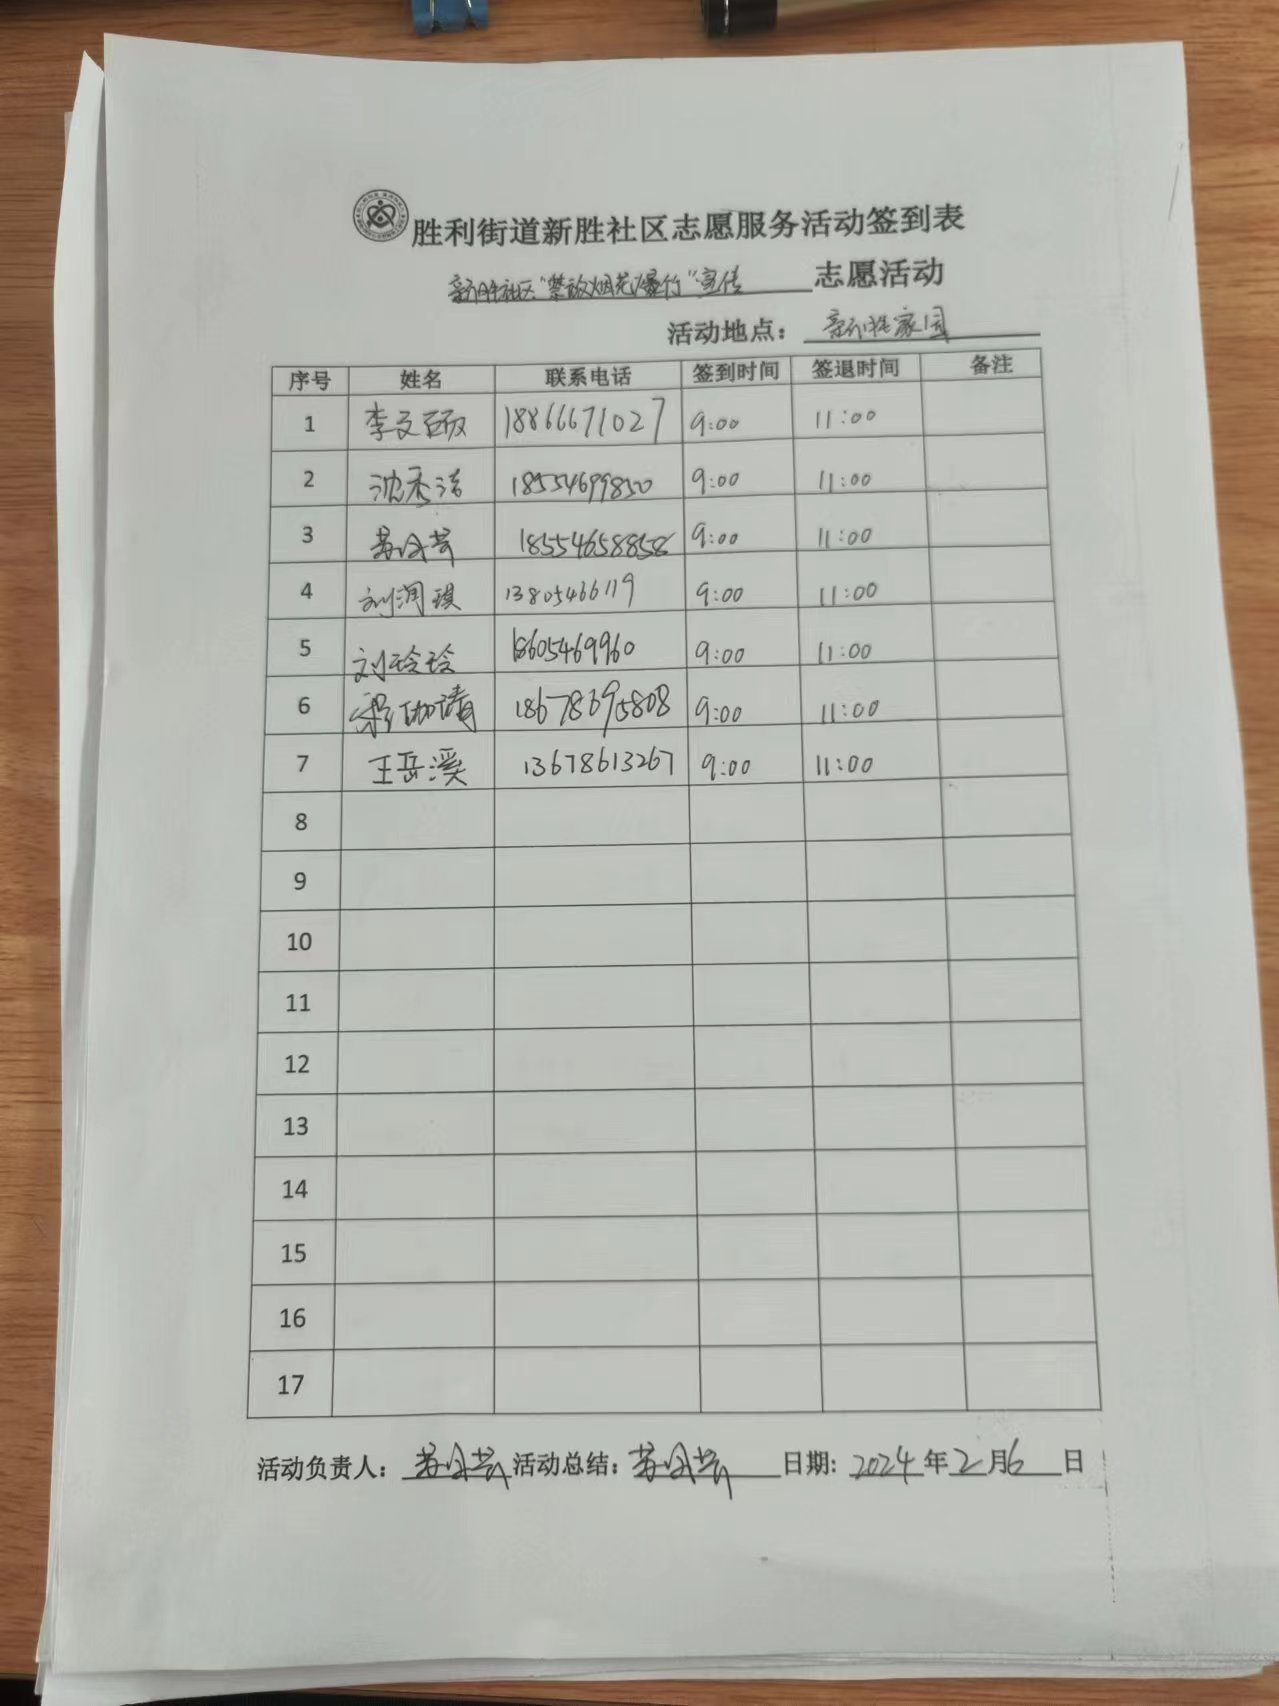 胜利街道新胜社区志愿服务活动签到表
新胜社区"禁放烟花爆竹"宣传 志愿活动
活动地点：新胜家园
序号 姓名 联系电话 签到时间 签退时间 备注
1 李文 18866671027 9:00 11:00
2 沈秀洁 18554699850 9:00 11:00
3 18554658858 9:00 11:00
4 刘润琪 13805466119 9:00 11:00
5 刘玲玲 18605469960 9:00 11:00
6 18678695808 9:00 11:00
7 王岳溪 13678613267 9:00 11:00
8
9
10
11
12
13
14
15
16
17
活动负责人： 活动总结： 日期: 2024年2月6日